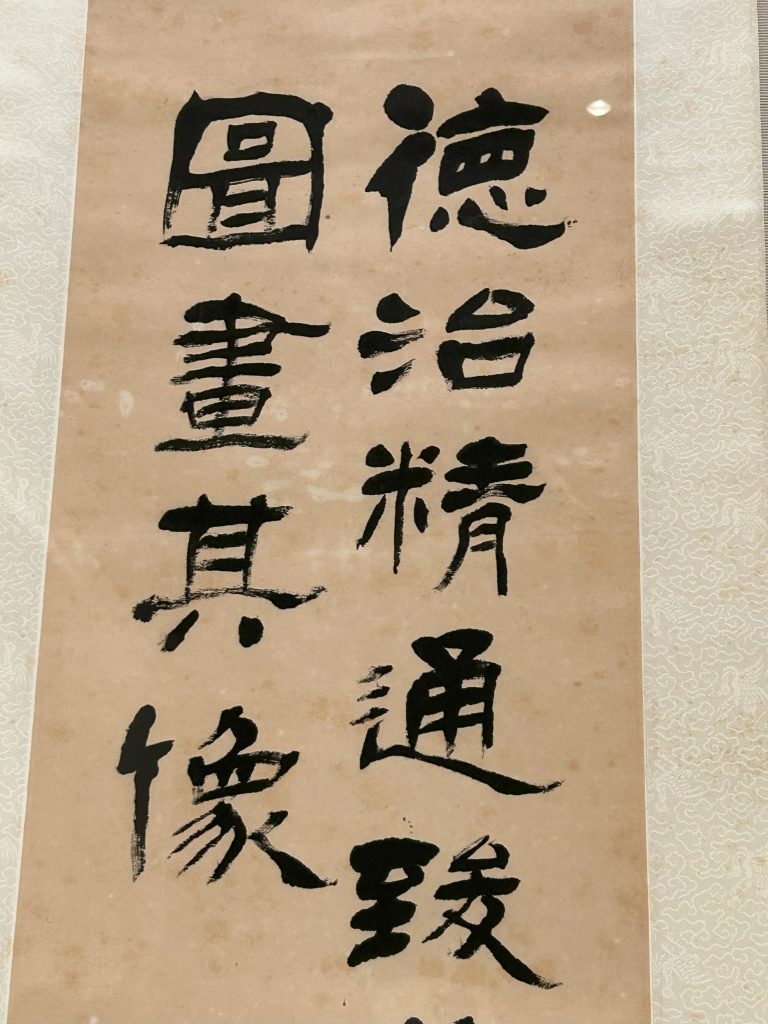 德治精通致
圖畫其像